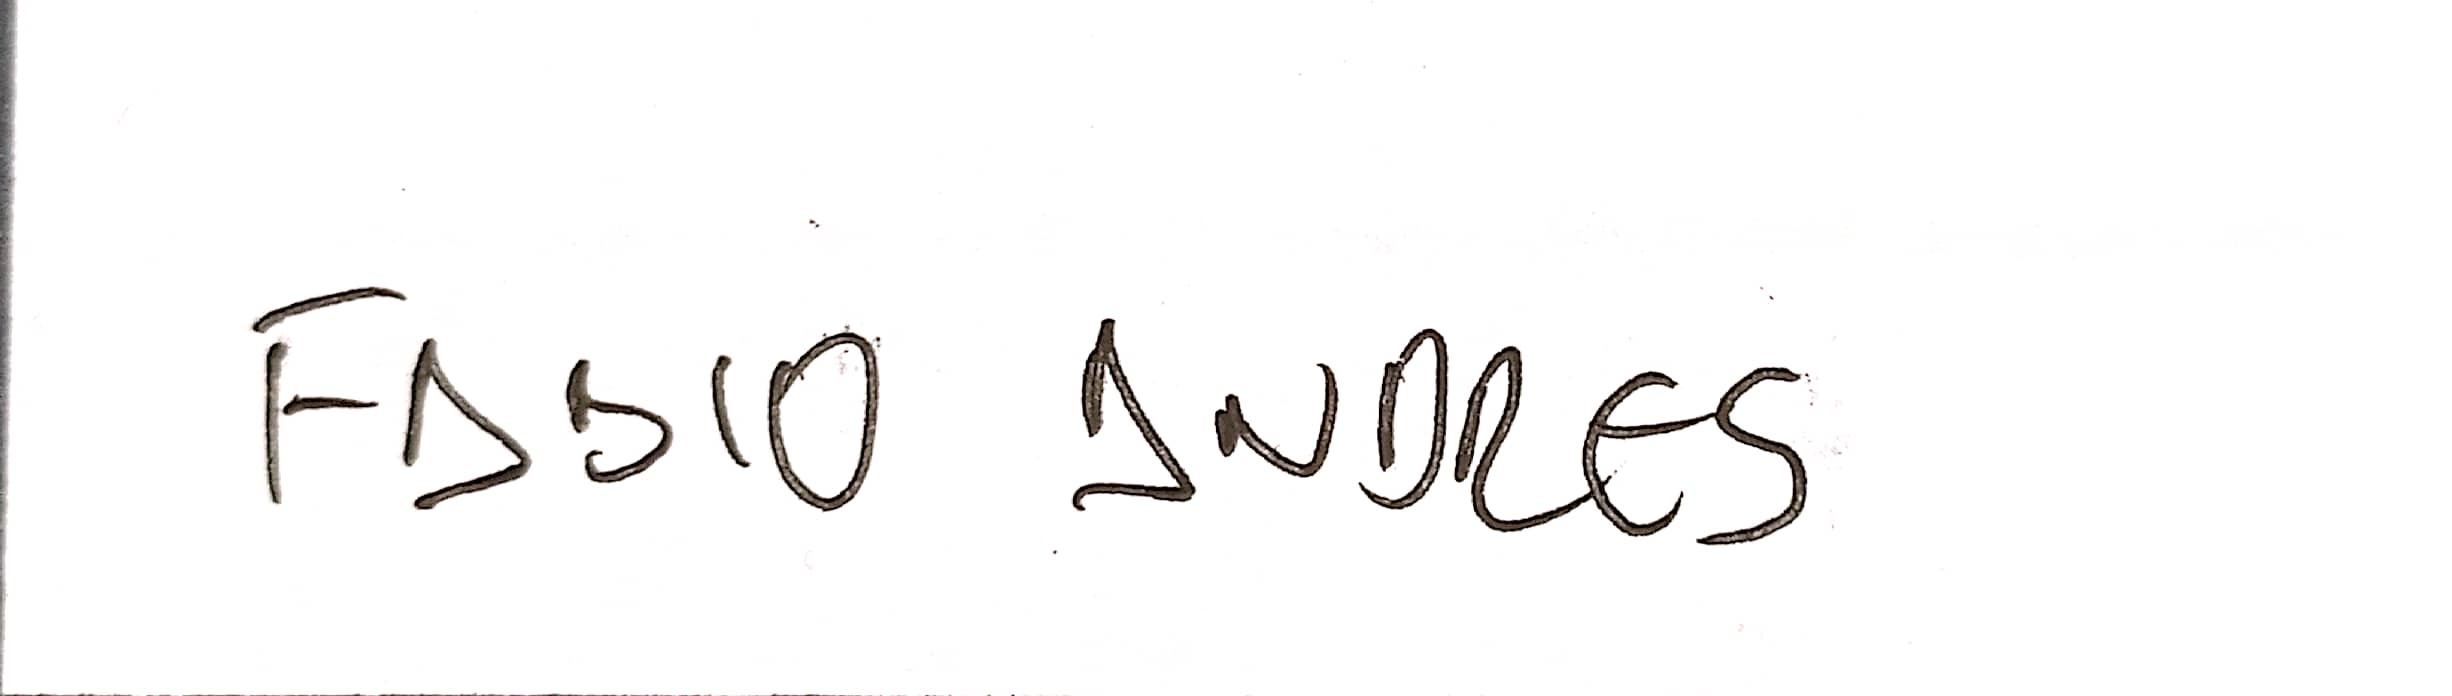 FABIO ANDRES